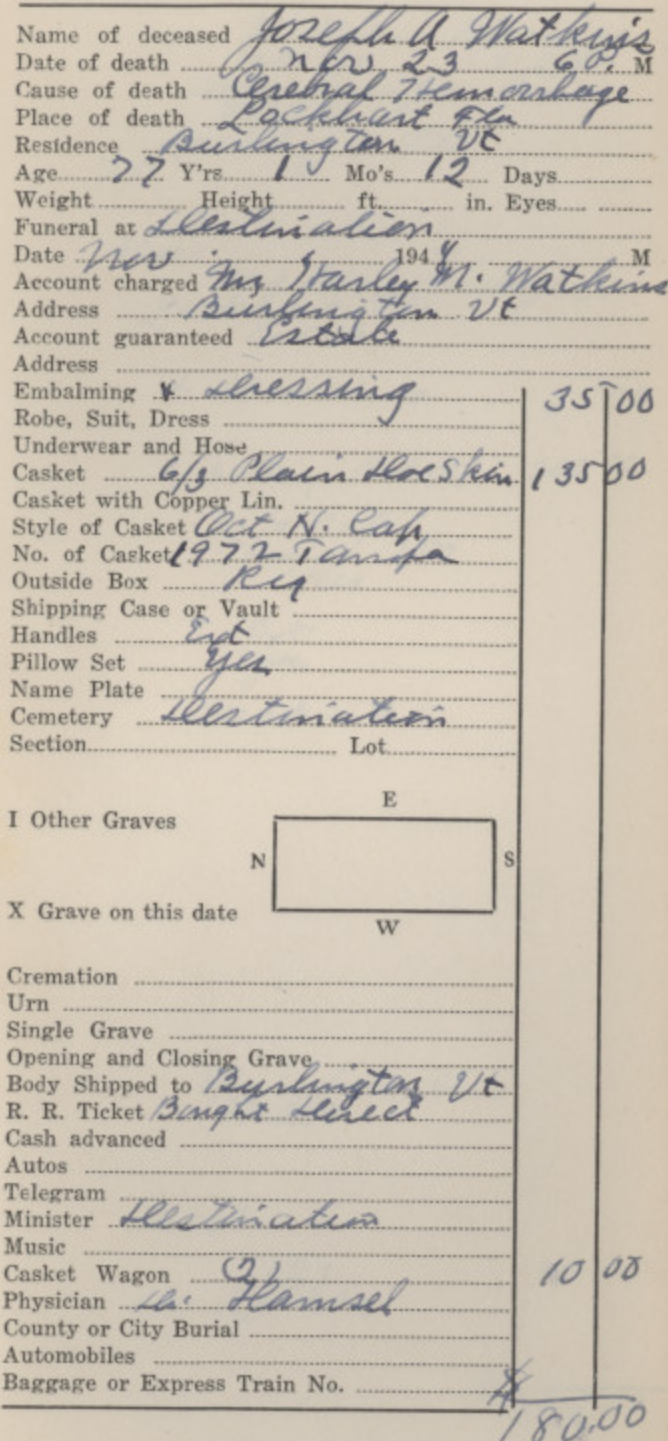 Name of deceased Joseph A Watkins
Date of death Nov 23 6 P. M
Cause of death Cerebral Hemorrhage
Place of death Lockhart Fla
Residence Burlington Vt
Age 77 Y'rs 1 Mo's 12 Days
Weight Height ft. in. Eyes
Funeral at Destination
Date Nov 1944 M
Account charged Mr Harley M. Watkins
Address Burlington Vt
Account guaranteed Estate
Address
Embalming & Dressing 35 00
Robe, Suit, Dress
Underwear and Hose
Casket 6/3 Plain Doe Skin 135 00
Casket with Copper Lin.
Style of Casket Oct N. Cap
No. of Casket 1972 Tampa
Outside Box Reg
Shipping Case or Vault
Handles Ext
Pillow Set Yes
Name Plate
Cemetery Destination
Section Lot
E
I Other Graves
N S
X Grave on this date
W
Cremation
Urn
Single Grave
Opening and Closing Grave
Body Shipped to Burlington Vt
R. R. Ticket Bought Direct
Cash advanced
Autos
Telegram
Minister Destination
Music
Casket Wagon (2) 10 00
Physician Dr. Hamsel
County or City Burial
Automobiles
Baggage or Express Train No.
$180.00